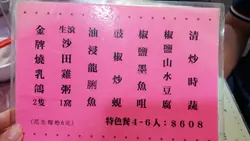 清炒時蔬
椒鹽山水豆腐
椒鹽墨魚咀
豉椒炒蜆
油浸龍脷魚
生滾沙田雞粥1窩
金牌燒乳鴿2隻
特色餐4-6人：$608